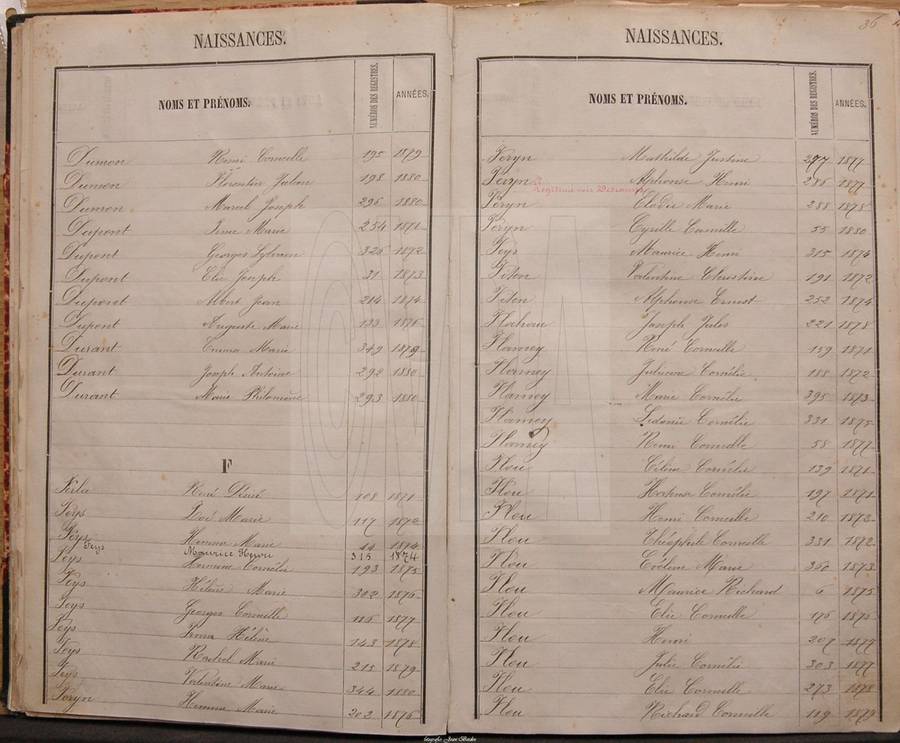 NAISSANCES.
NOMS ET PRÉNOMS. NUMÉROS DES REGISTRES. ANNÉES.
Dumon Remi Corneille 195 1879
Dumon Florentin Julien 198 1880
Dumon Marcel Joseph 296 1880
Dupont Irma Marie 254 1871
Dupont Georges Sylvain 326 1872
Dupont Elie Joseph 31 1873
Dupont Albert Jean 214 1874
Dupont Auguste Marie 133 1876
Durant Emma Marie 349 1879
Durant Joseph Antoine 292 1880
Durant Marie Philomène 293 1880
F
René Désiré 108 1871
Feys Zoé Marie 117 1872
Feys Hemma Marie 11 1874
Feys Maurice Henri 315 1874
Feys Hermine Cornélie 193 1875
Feys Hélène Marie 302 1876
Feys Georges Corneille 116 1877
Feys Irma Hélène 143 1878
Feys Rachel Marie 215 1879
Feys Valentine Marie 344 1880
Feryn Hemma Marie 202 1876
36
NAISSANCES.
NOMS ET PRÉNOMS. NUMÉROS DES REGISTRES. ANNÉES.
Feryn Mathilde Justine 277 1877
Feryn Alphonse Henri 286 1877
légitimé voir
Feryn Elodie Marie 288 1878
Feryn Cyrille Camille 55 1880
Feys Maurice Henri 315 1874
Fiton Valentine Clérostine 191 1872
Fiton Alphonse Ernest 252 1874
Joseph Jules 221 1878
Flamey René Corneille 159 1871
Flamey Julienne Cornélie 188 1872
Flamey Marie Cornélie 395 1873
Flamey Sidonie Cornélie 331 1875
Flamey Remi Corneille 58 1877
Flou Céline Cornélie 139 1871
Flou Hortense Cornélie 197 1871
Flou Henri Corneille 210 1872
Flou Théophile Corneille 331 1872
Flou Evéline Marie 367 1873
Flou Maurice Richard 6 1875
Flou Elie Corneille 176 1876
Flou Henri 207 1877
Flou Julie Cornélie 303 1877
Flou Elie Corneille 273 1878
Flou Richard Corneille 119 1879